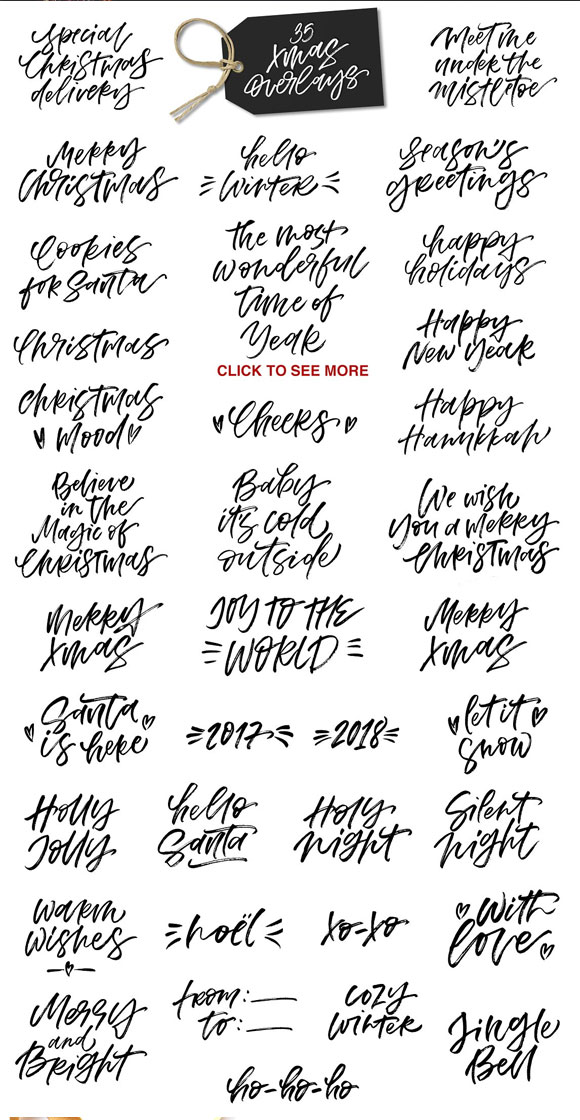 special
Christmas
delivery
35
xmas
overlays
Meet me
under the
mistletoe
Merry
Christmas
hello
Winter
season's
greetings
Cookies
for Santa
the most
wonderful
time of
Year
happy
holidays
Christmas
CLICK TO SEE MORE
Happy
New Year
Christmas
mood
Cheers
Happy
Hanukkah
Believe
in the
Magic of
Christmas
Baby
it's cold
outside
We wish
you a merry
Christmas
merry
xmas
JOY TO THE
WORLD
Merry
xmas
Santa
is here
2017
2018
let it
snow
Holly
Jolly
hello
Santa
Holy
night
Silent
night
warm
wishes
noël
xo-xo
with
love
Merry
and
Bright
from:
to:
cozy
winter
Jingle
Bell
ho-ho-ho